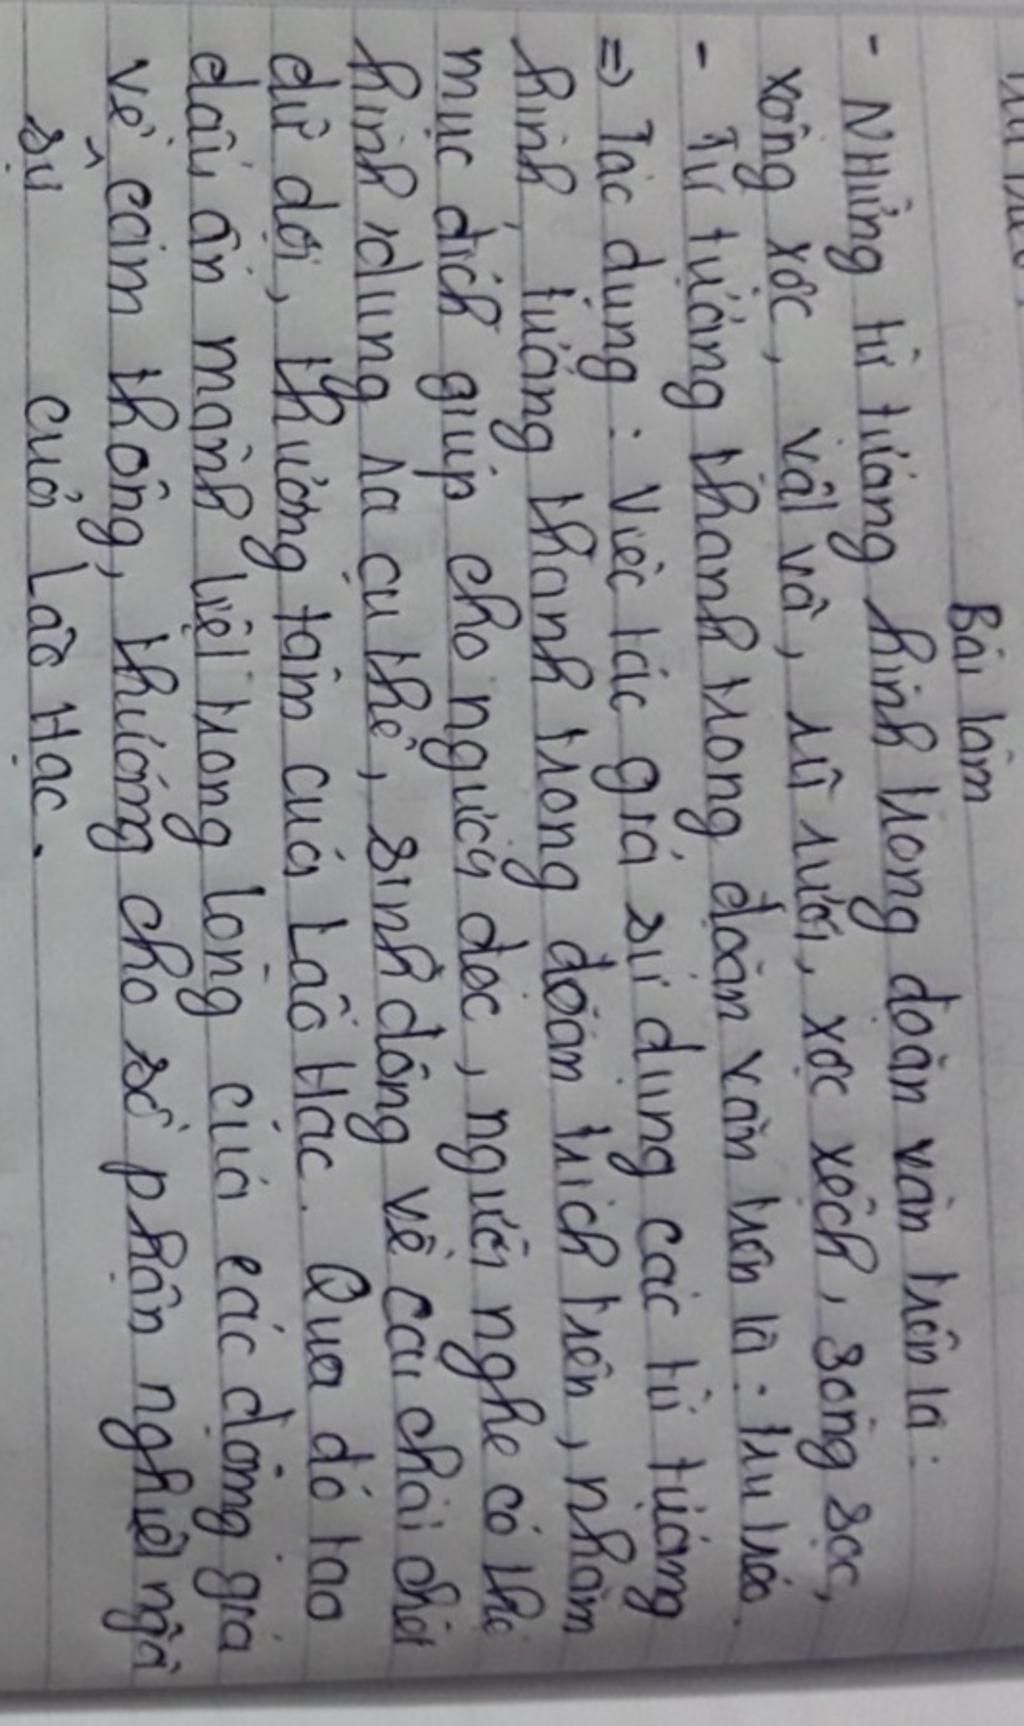 Bài làm
- Những từ tượng hình trong đoạn văn trên là:
xồng xộc, vật vã, rũ rượi, xộc xệch, sòng sọc,
- Từ tượng thanh trong đoạn văn trên là: tru tréo.
=> Tác dụng: Việc tác giả sử dụng các từ tượng
hình, tượng thanh trong đoạn trích trên, nhằm
mục đích giúp cho người đọc, người nghe có thể
hình dung ra cụ thể, sinh động về cái chết
dữ dội, thương tâm của Lão Hạc. Qua đó tạo
dấu ấn mạnh liệt trong lòng của các độc giả
về cảm thông, thương cho số phận nghiệt ngã
sự của Lão Hạc.